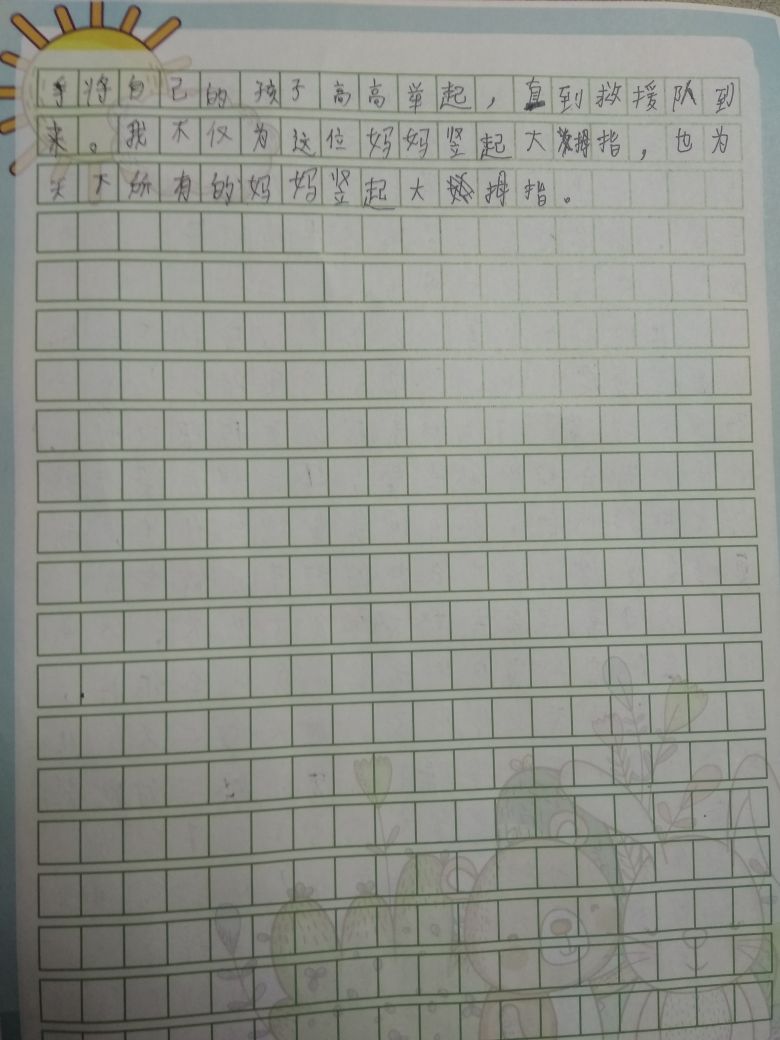 手将自己的孩子高高举起，直到救援队到
来。我不仅为这位妈妈竖起大拇指，也为
天下所有的妈妈竖起大拇指。